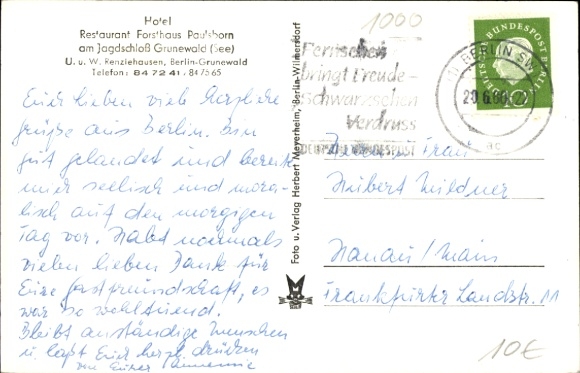 Hotel
Restaurant Forsthaus Paulsborn
am Jagdschloß Grunewald (See)
U. u. W. Renziehausen, Berlin-Grunewald
Telefon: 84 72 41 · 84 75 65
Euch lieben viele herzliche
Grüße aus Berlin. Bin
gut gelandet und bereite
mich seelisch und mora-
lisch auf den morgigen
Tag vor. Habt nochmals
vielen lieben Dank für
Eure Gastfreundschaft, es
war so wohltuend.
Bleibt anständige Menschen
u. laßt Euch herzl. drücken
von Eurer Annemie
Foto u. Verlag Herbert Meyerheim, Berlin-Wilmersdorf
1000
Fernsehen
bringt Freude –
schwarzsehen
Verdruss
DEUTSCHE BUNDESPOST
DEUTSCHE BUNDESPOST BERLIN
BERLIN SW
20.6.60
Frau
Hubert Wildner
Hanau/Main
Frankfurter Landstr. 11
10€